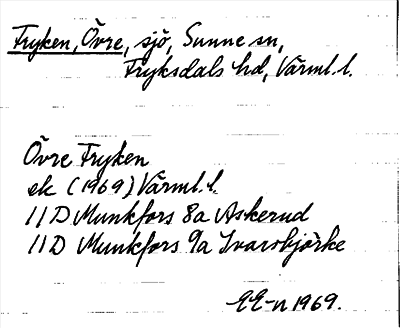 Fryken, Övre, sjö, Sunne sn,
Fryksdals hd, Värml. l.
Övre Fryken
ek (1969) Värml. l.
11D Munkfors 8a Askerud
11D Munkfors 9a Ivarsbjörke
EE-n 1969.